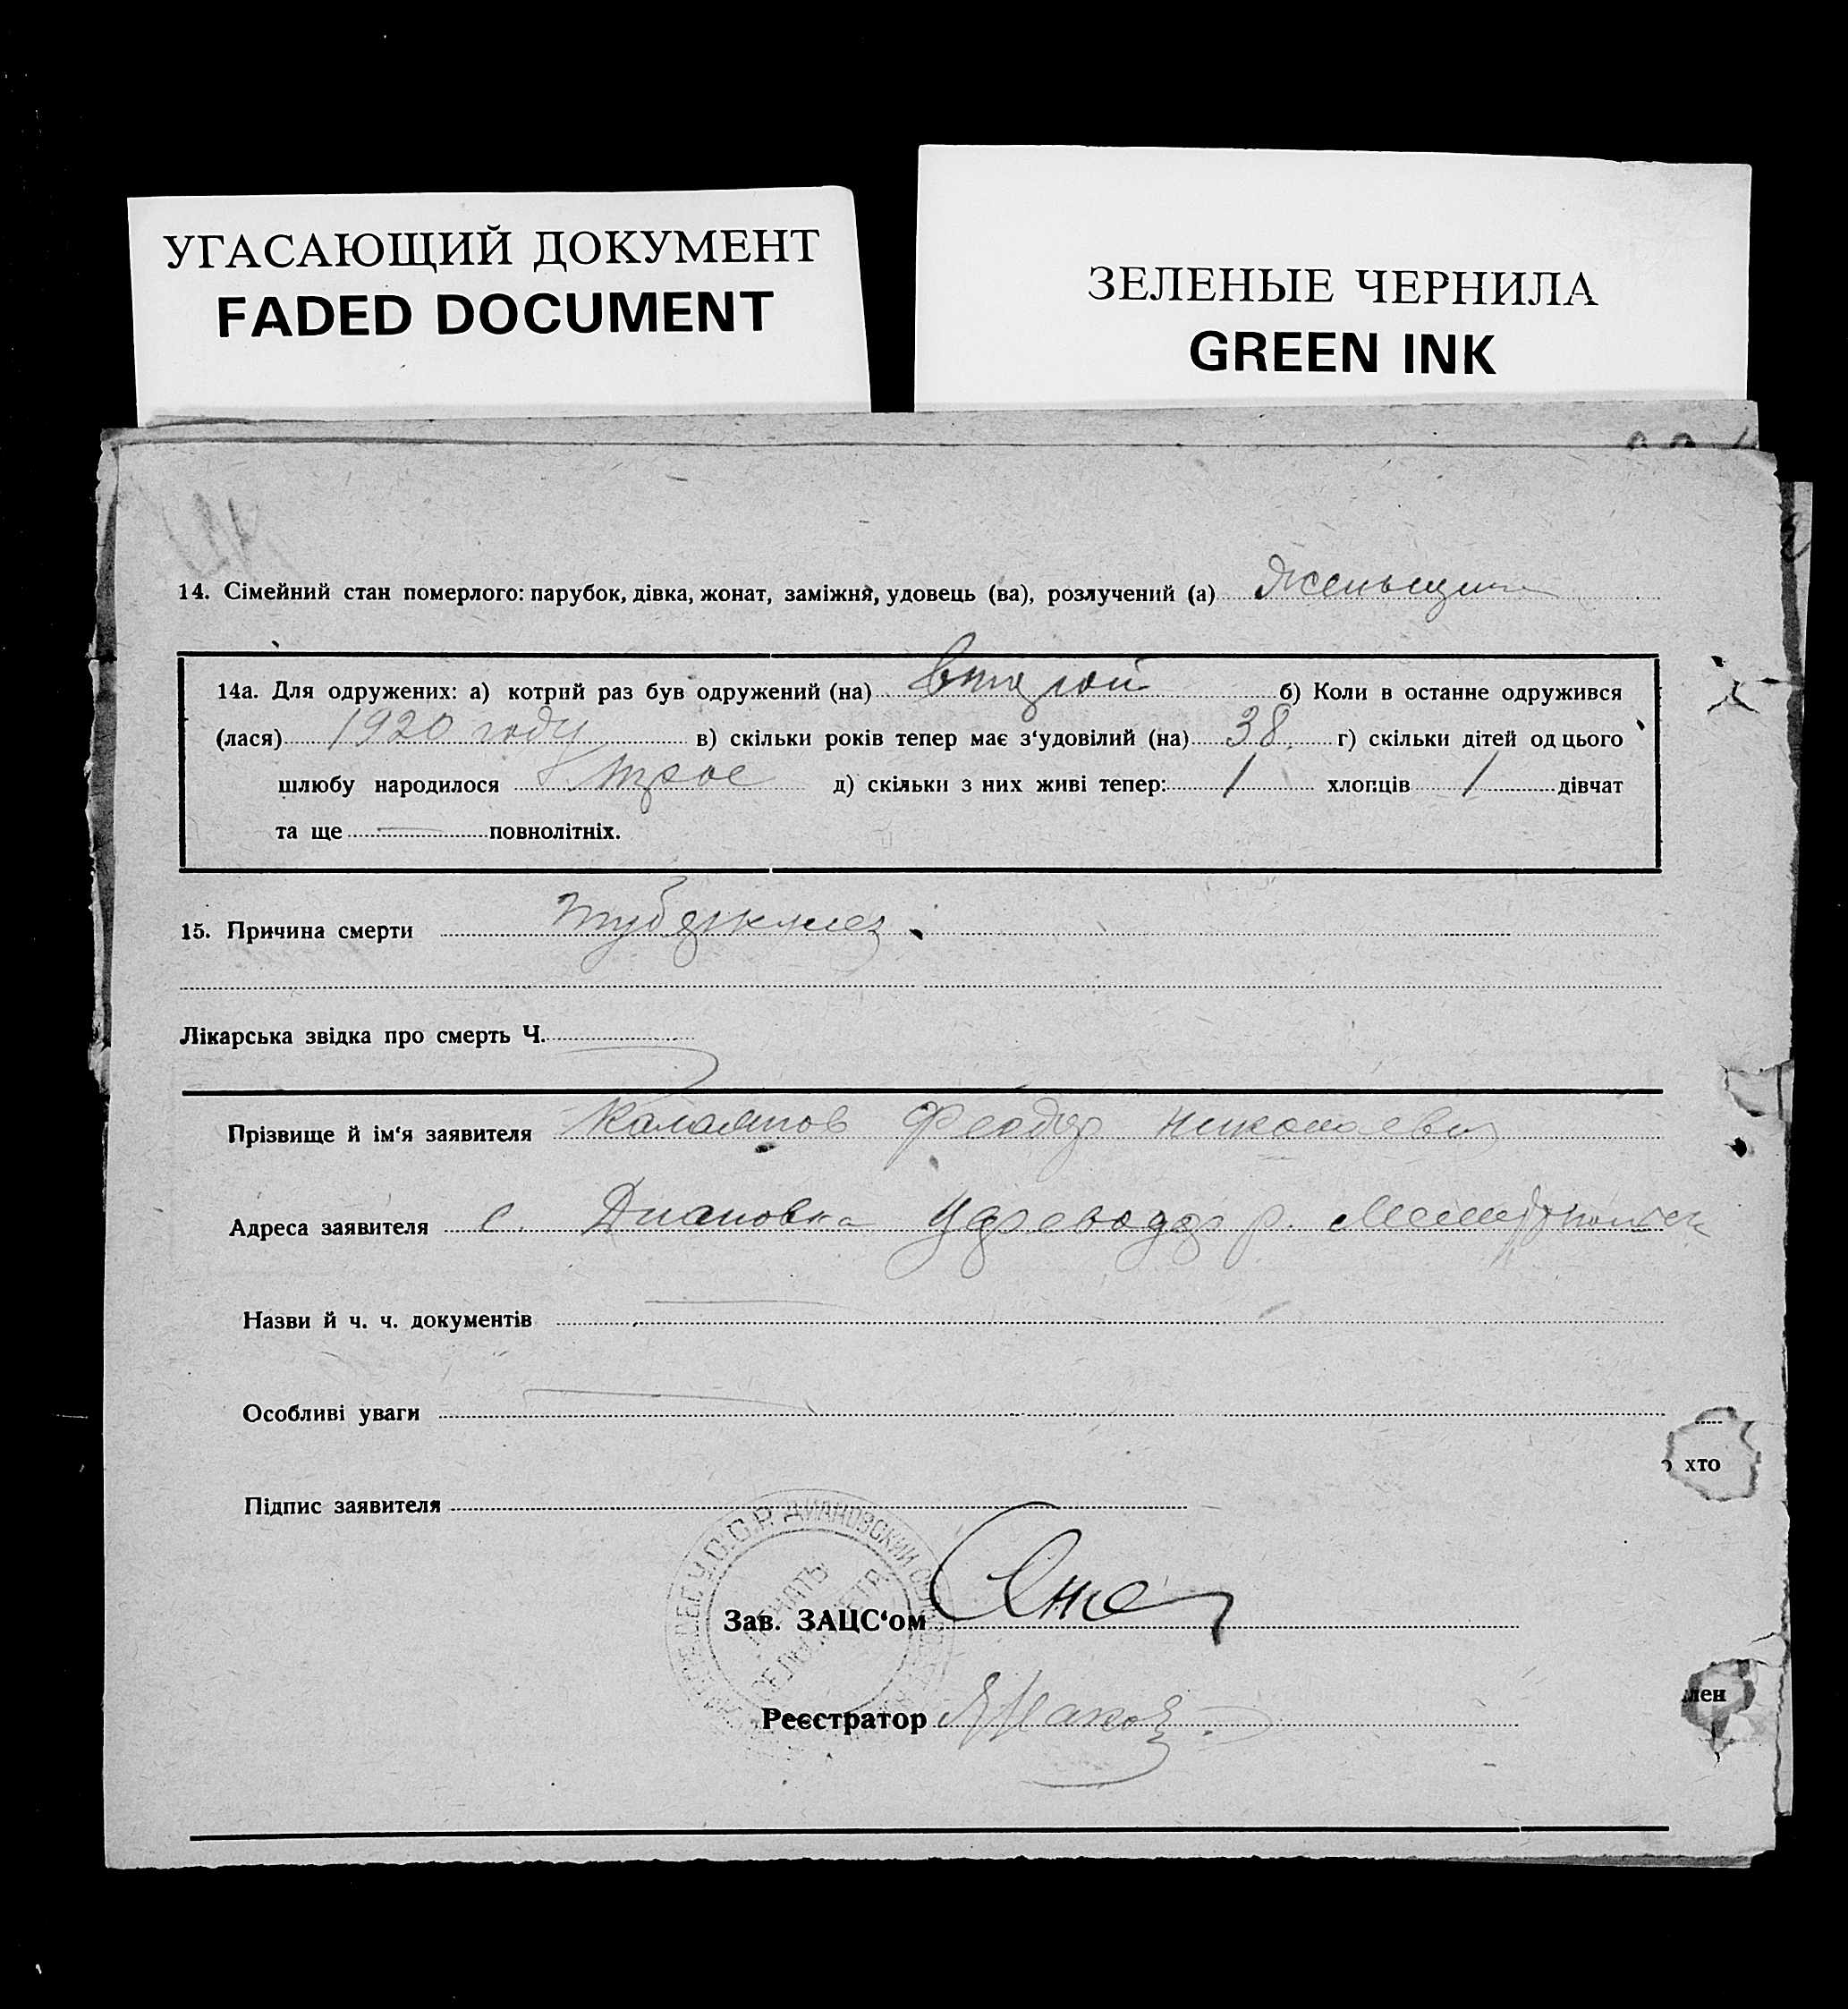 УГАСАЮЩИЙ ДОКУМЕНТ
FADED DOCUMENT
ЗЕЛЕНЫЕ ЧЕРНИЛА
GREEN INK
14. Сімейний стан померлого: парубок, дівка, жонат, заміжня, удовець (ва), розлучений (а)
14а. Для одружених: а) котрий раз був одружений (на) второй б) Коли в останне одружився
(лася) 1920 году в) скільки років тепер має з‘удовілий (на) 38 г) скільки дітей од цього
шлюбу народилося трое д) скільки з них живі тепер: 1 хлопців 1 дівчат
та ще — повнолітніх.
15. Причина смерти
Лікарська звідка про смерть Ч.
Прізвище й ім‘я заявителя Феодор Николаевич
Адреса заявителя с. Диановка
Назви й ч. ч. документів —
Особливі уваги —
хто
Підпис заявителя
У.С.С.Р. ДИАНОВСКИЙ
ПЕЧАТЬ
Зав. ЗАЦС‘ом
лен
Реєстратор